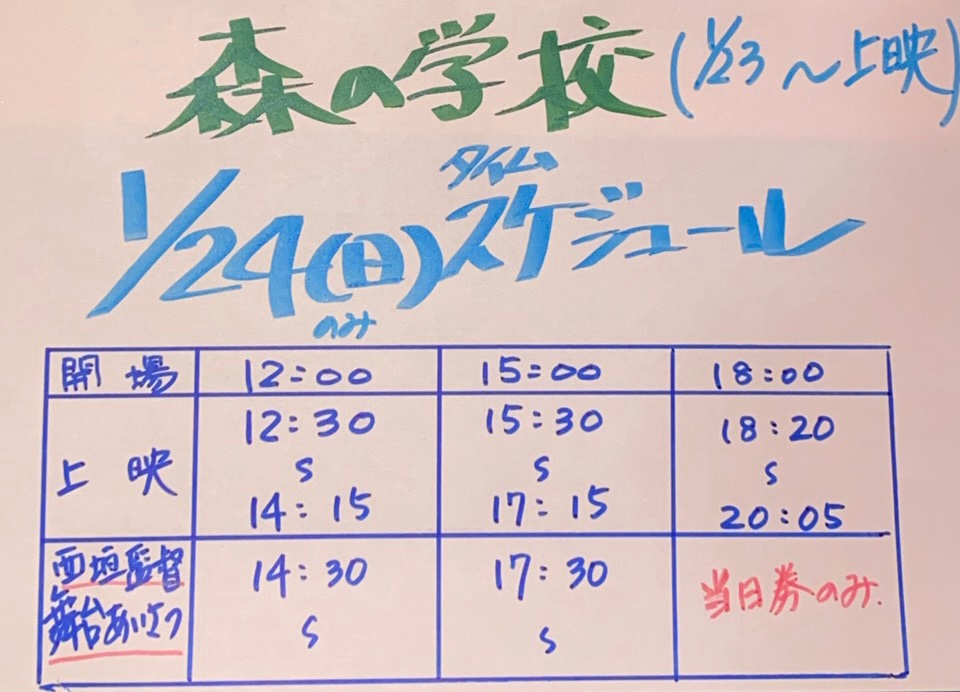 森の学校(1/23～上映)
タイム
1/24(日)スケジュール
のみ
開場 12:00 15:00 18:00
上映 12:30 15:30 18:20
S S S
14:15 17:15 20:05
西垣監督 14:30 17:30 当日券のみ.
舞台あいさつ S S